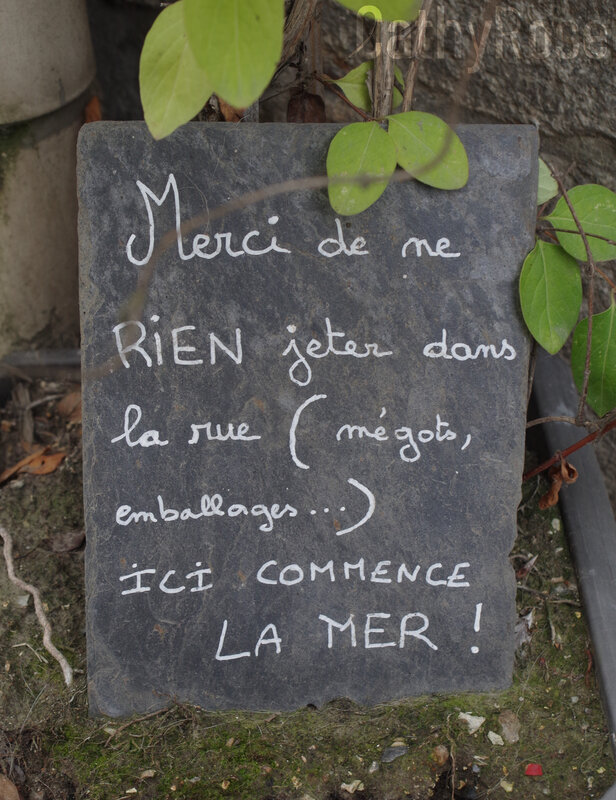 CathyRose
Merci de ne
RIEN jeter dans
la rue ( mégots,
emballages...)
ICI COMMENCE
LA MER !